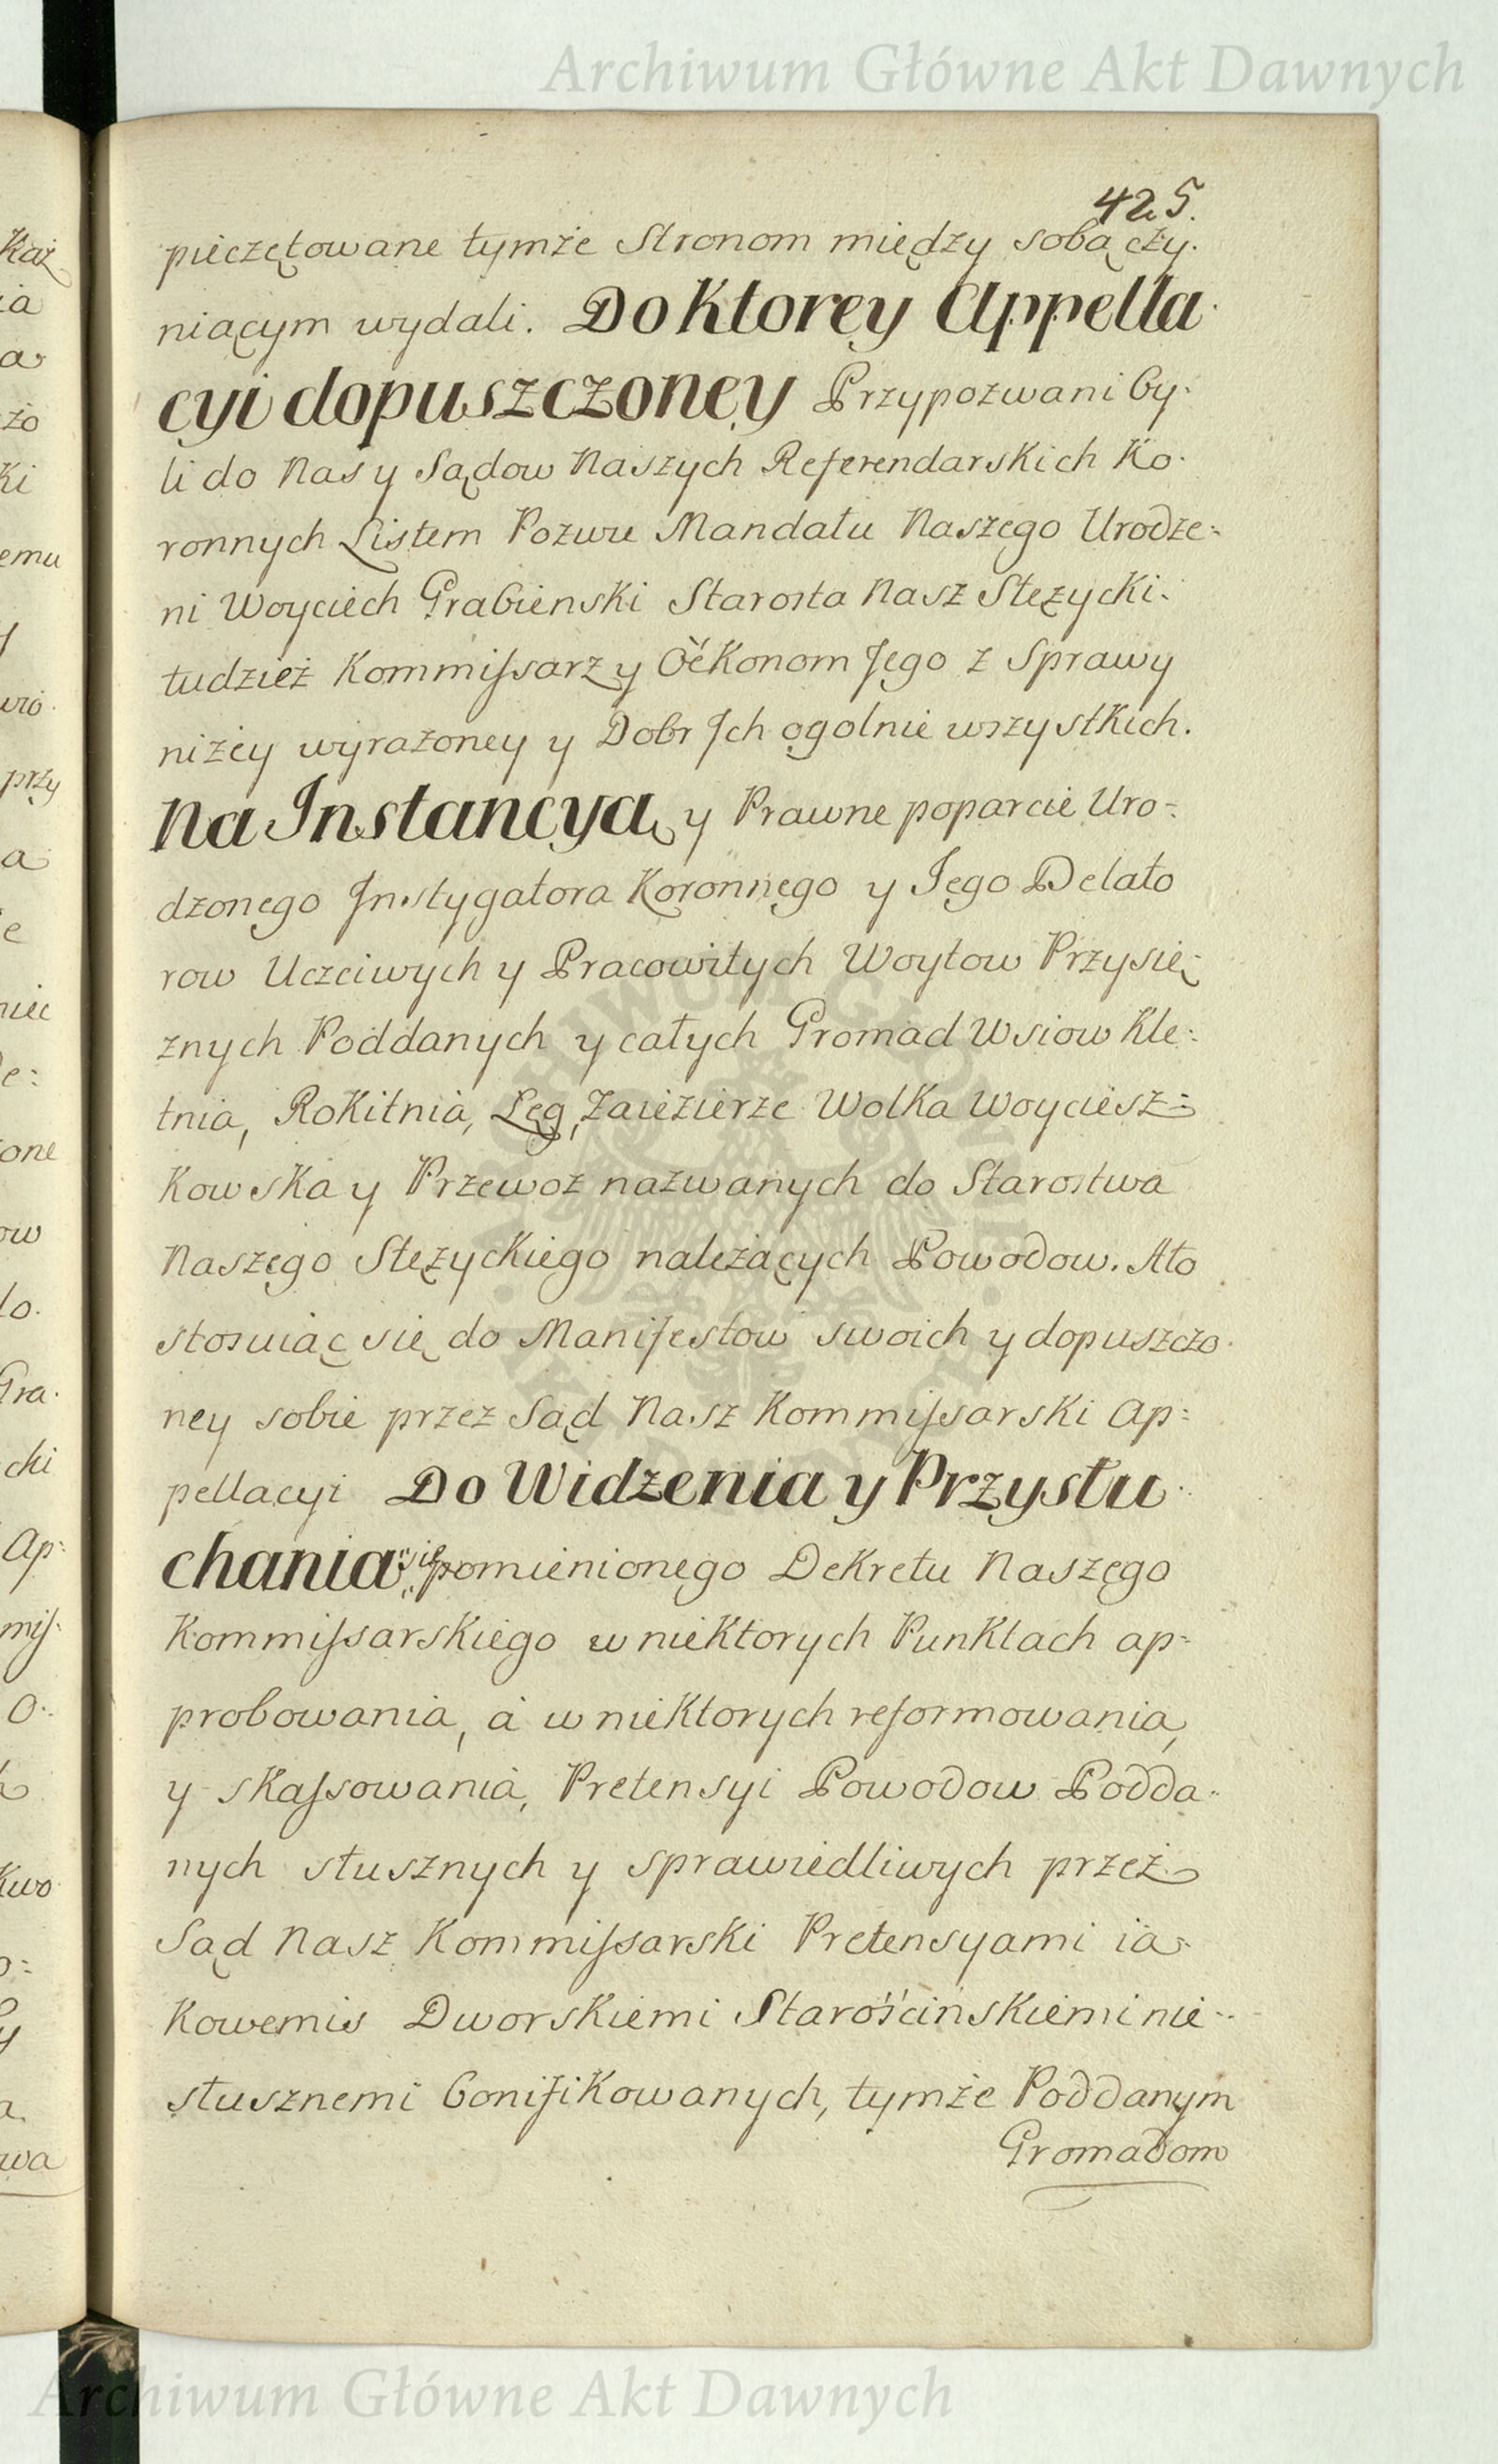 Archiwum Główne Akt Dawnych
425.
pieczętowane tymże Stronom między sobą czy-
niącym wydali. Do Ktorey Appella-
cyi dopuszczoney Przypozwani by-
li do Nas y Sądow Naszych Referendarskich Ko-
ronnych Listem Pozwu Mandatu Naszego Urodze=
ni Woyciech Grabienski Starosta Nasz Stężycki.
tudzież Kommissarz y Oekonom Jego z Sprawy
niżey wyrażoney y Dobr Jch ogolnie wszystkich.
Na Instancyą y Prawne poparcie Uro=
dzonego Jnstygatora Koronnego y Jego Delato
row Uczciwych y Pracowitych Woytow Przysię=
znych Poddanych y całych Gromad Wsiow Kle=
tnia, Rokitnia, Lęg, Zaiezierze Wolka Woyciesz=
kowska y Przewoz nazwanych do Starostwa
Naszego Stężyckiego należących Powodow. Ato
stosuiąc się do Manifestow swoich y dopuszczo-
ney sobie przez Sąd Nasz Kommissarski Ap=
pellacyi Do Widzenia y Przysłu-
chania się pomienionego Dekretu Naszego
Kommissarskiego w niektorych Punktach ap=
probowania, a w niektorych reformowania,
y skassowania, Pretensyi Powodow Podda-
nych słusznych y sprawiedliwych przez
Sąd Nasz Kommissarski Pretensyami ia-
kowemis Dworskiemi Starościnskiemi nie-
słusznemi bonifikowanych, tymże Poddanym
Gromadom
Archiwum Główne Akt Dawnych